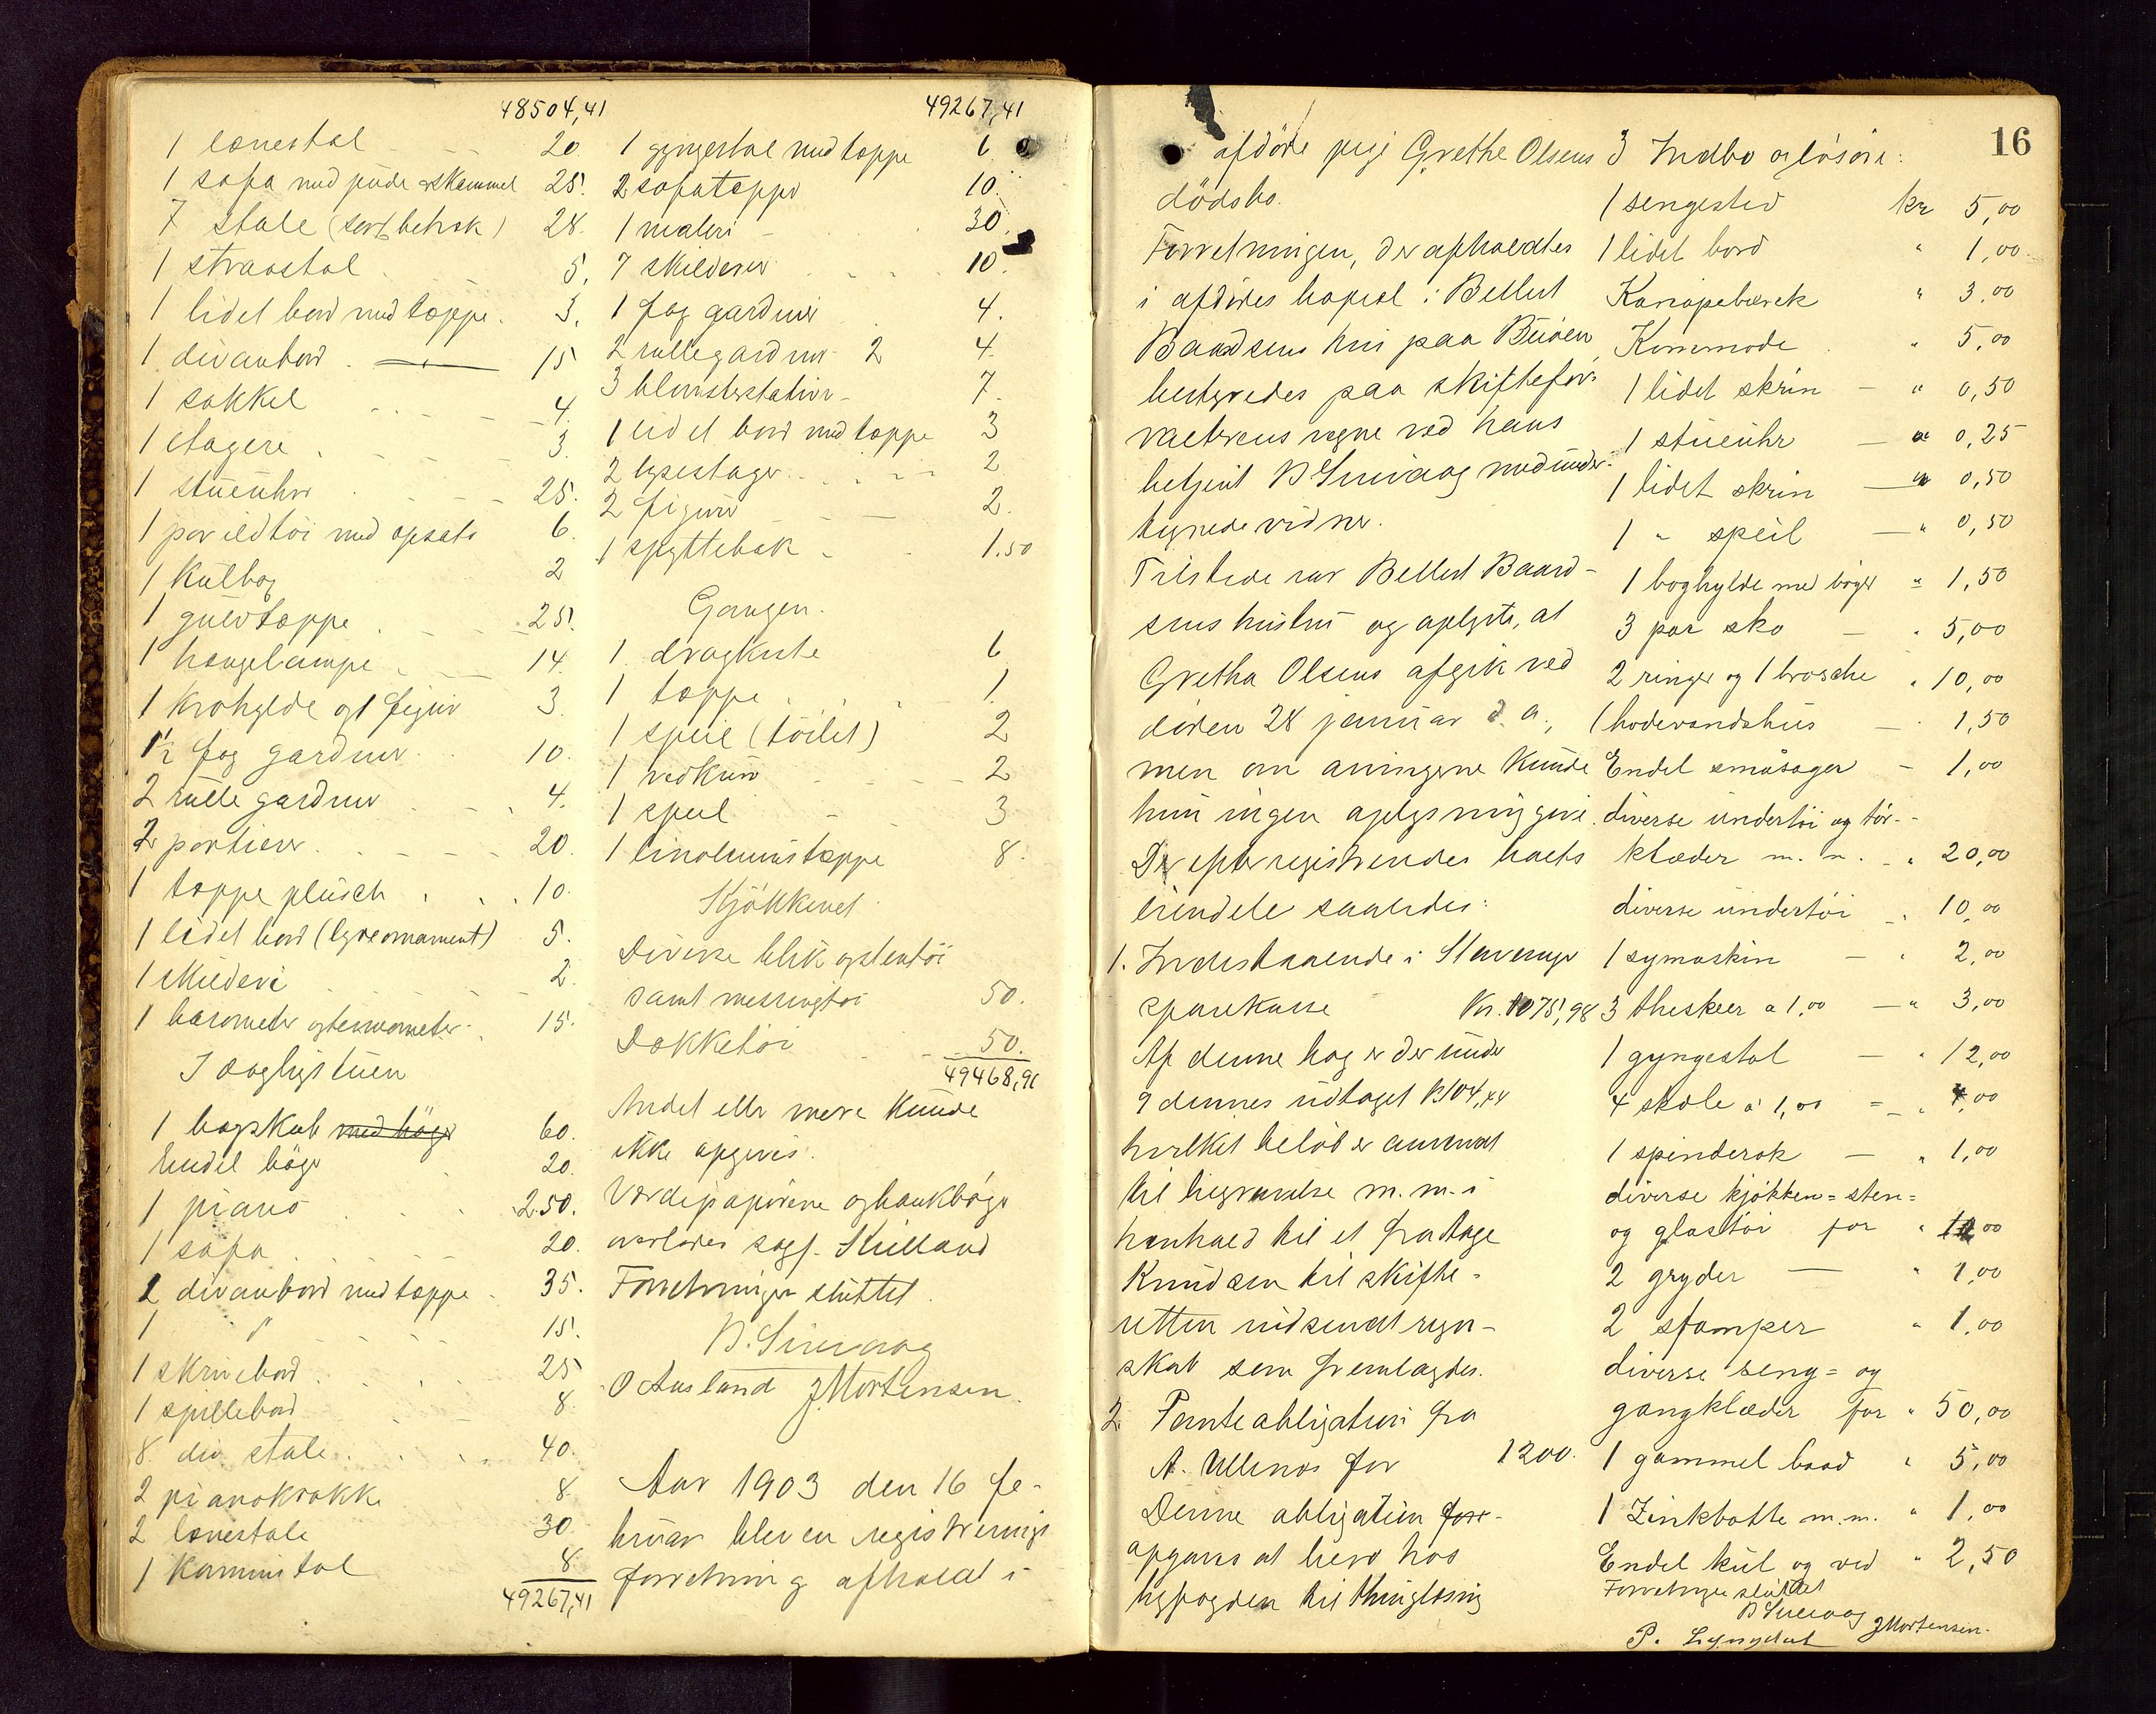 48504,41
1 lænestol 20.
1 sofa med pude & skammel 25.
7 stole (sort betræk) 28.
1 straastol 5.
1 lidet bord med tæppe 3.
1 divanbord 15
1 sokkel 4.
1 etagere 3.
1 stueuhr 25.
1 par ildtöi med opsats 6.
1 kulbox 2
1 gulvtæppe 25.
1 hængelampe 14.
1 krohylde og 1 figur 3.
1½ fag gardiner 10.
2 rullegardiner 4.
2 portierer 20.
1 tæppe plüsch 10.
1 lidet bord (lyreornament) 5.
1 skilderi 2.
1 barometer og termometer 15.
I dagligstuen
1 bogskab med böger 60.
Endel böger 20.
1 piano 250.
1 sofa 20.
1 divanbord med tæppe 35.
1 " 15.
1 skrivebord 25
1 spillebord 8
8 div stole 40.
2 pianokrakke 8
2 lænestole 30
1 kaminstol 8
49267,41
49267,41
1 gyngestol med tæppe 6
2 sofatæpper 10.
1 maleri 30.
7 skilderier 10.
1 fag gardiner 4.
2 rullegardiner 2 4.
3 blomsterstativer 7.
1 lidet bord med tæppe 3
2 lysestager 2
2 figurer 2.
1 spyttebak 1.50
Gangen.
1 dragkiste 6
1 tæppe 1.
1 speil (toilet) 2
1 vedkurv 2
1 speil 3
1 linoleumstæppe 8.
Kjökkenet
Diverse blik og stentöi
samt messingtöi 50.
Dækketöi 50.
49468,91
Andet eller mere kunde
ikke opgives.
Værdipapirene og bankböger
overlodes sagf. Kielland
Forretningen sluttet.
B. Sunaag
O Ausland J Mortensen.
Aar 1903 den 16 fe-
bruar blev en registrerings
forretning afholdt i
16
afdöde pige Grethe Olsens
dödsbo.
Forretningen, der afholdtes
i afdödes bopæl i Bellest
Baardsens hus paa Buöen
bestyredes paa skiftefor-
valterens vegne ved hans
betjent B Sunaag med under-
tegnede vidner.
Tilstede var Bellest Baard-
sens hustru og oplyste, at
Gretha Olsens afgik ved
döden 28 januar d. a.,
men om arvingerne kunde
hun ingen oplysning give.
Der efter registrerdes boets
eiendele saaledes:
1. Indestaaende i Stavanger
sparekasse Kr. 1075,98
Af denne bog er der under
9 dennes udtaget kr 104,44
hvilket belöb er anvendt
til begravelse m. m. i
henhold til et fra Aage
Knudsen til skifte-
retten indsendt regn-
skab som fremlagdes.
2. Panteobligation fra
A. Ullenes for 1200.
Denne obligation fore-
opgaves at bero hos
byfogden til thinglæsning
3 Indbo og lösöre:
1 sengested kr 5,00
1 lidet bord " 1,00
Kanapebænk " 3,00
Kommode " 5,00
1 lidet skrin " 0,50
1 stueuhr " 0,25
1 lidet skrin " 0,50
1 " speil " 0,50
1 boghylde med böger " 1,50
3 par sko " 5,00
2 ringer og 1 brosche " 10,00
1 hovedvandshus 1,50
Endel småsager - 1,00
diverse undertöi og tör-
klæder m. m. " 20,00
diverse undertöi " 10,00
1 symaskin " 2,00
3 theskeer a 1,00 " 3,00
1 gyngestol " 12,00
4 stole a 1,00 " 4,00
1 spinderok " 1,00
diverse kjökken= sten=
og glastöi for " 10,00
2 gryder " 1,00
2 stamper " 1,00
diverse seng= og
gangklæder for " 50,00
1 gammel baad " 5,00
1 Zinkbotte m.m. " 1,00
Endel kul og ved " 2,50
Forretningen sluttet
B Sunaag
P. Lyngdal J Mortensen.